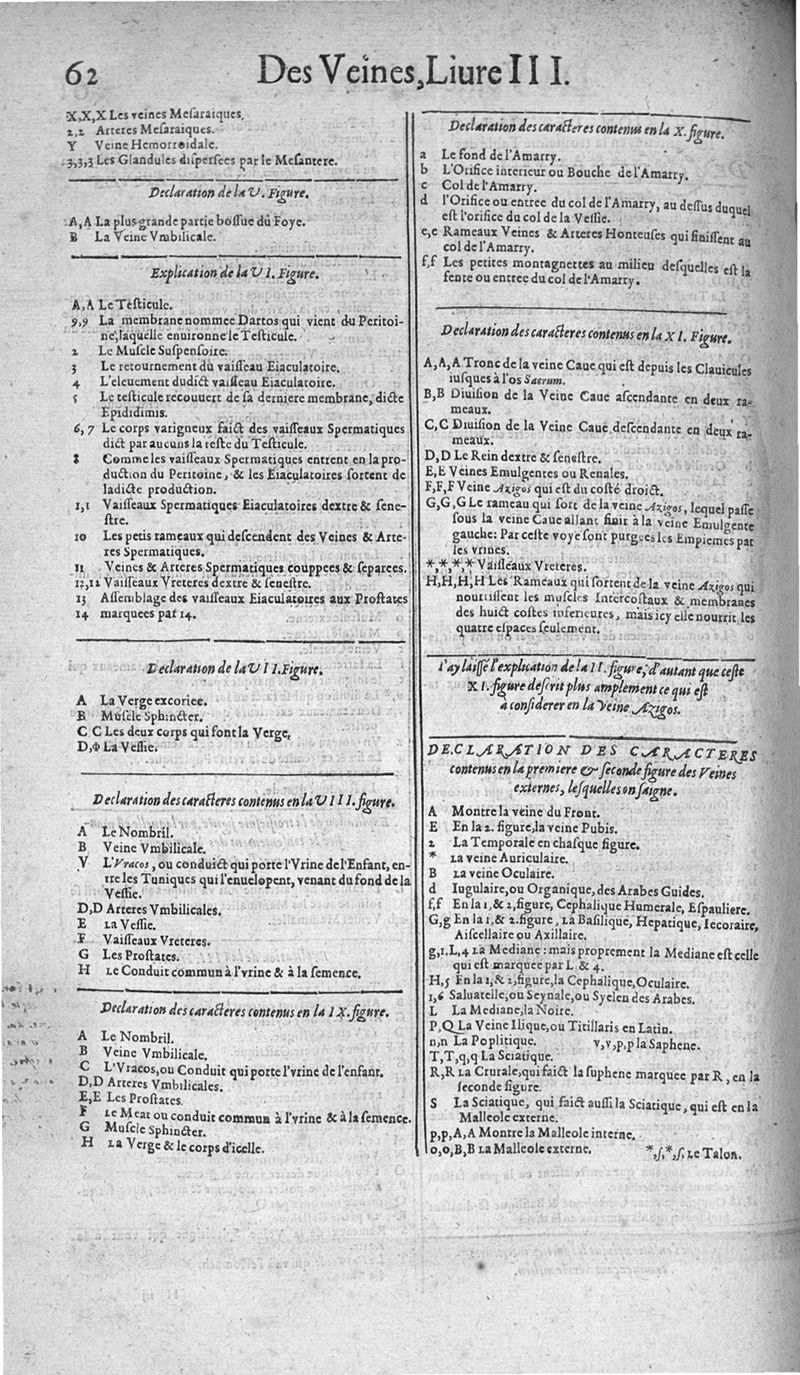 62
Des Veines, Liure III.
X,X,X Les veines Meſaraiques,
2,2 Arteres Meſaraiques.
Y Veine Hemorroidale.
3,3,3 Les Glandules diſperſees par le Meſantere.
Declaration de la V. Figure.
A,A La plus grande partie boſſue du Foye.
B La Veine Vmbilicale.
Explication de la VI. Figure.
A,A Le Teſticule.
9,9 La membrane nommee Dartos qui vient du Peritoi-
ne, laquelle enuironne le Teſticule.
2 Le Muſcle Suſpenſoire.
3 Le retournement du vaiſſeau Eiaculatoire.
4 L'eleuement dudict vaiſſeau Eiaculatoire.
5 Le teſticule recouuert de ſa derniere membrane, dicte
Epididimis.
6,7 Le corps varigneux faict des vaiſſeaux Spermatiques
dict par aucuns la teſte du Teſticule.
8 Comme les vaiſſeaux Spermatiques entrent en la pro-
duction du Peritoine, & les Eiaculatoires ſortent de
ladicte production.
1,1 Vaiſſeaux Spermatiques Eiaculatoires dextre & ſene-
ſtre.
10 Les petis rameaux qui deſcendent des Veines & Arte-
res Spermatiques.
11 Veines & Arteres Spermatiques couppees & ſeparees.
12,12 Vaiſſeaux Vreteres dextre & ſeneſtre.
13 Aſſemblage des vaiſſeaux Eiaculatoires aux Proſtates
14 marquees par 14.
Declaration de la VII. Figure.
A La Verge excoriee.
B Muſcle Sphincter.
C C Les deux corps qui font la Verge,
D,Φ La Veſſie.
Declaration des caracteres contenus en la VIII. figure.
A Le Nombril.
B Veine Vmbilicale.
V L'Vracos, ou conduict qui porte l'Vrine de l'Enfant, en-
tre les Tuniques qui l'enuelopent, venant du fond de la
Veſſie.
D,D Arteres Vmbilicales.
E La Veſſie.
F Vaiſſeaux Vreteres.
G Les Proſtates.
H Le Conduit commun à l'vrine & à la ſemence.
Declaration des caracteres contenus en la IX. figure.
A Le Nombril.
B Veine Vmbilicale.
C L'Vracos, ou Conduit qui porte l'vrine de l'enfant.
D,D Arteres Vmbilicales.
E,E Les Proſtates.
F Le Meat ou conduit commun à l'vrine & à la ſemence.
G Muſcle Sphincter.
H La Verge & le corps d'icelle.
Declaration des caracteres contenus en la X. figure.
a Le fond de l'Amarry.
b L'Orifice interieur ou Bouche de l'Amarry.
c Col de l'Amarry.
d l'Orifice ou entree du col de l'Amarry, au deſſus duquel
eſt l'orifice du col de la Veſſie.
e,e Rameaux Veines & Arteres Honteuſes qui finiſſent au
col de l'Amarry.
f,f Les petites montagnettes au milieu deſquelles eſt la
fente ou entree du col de l'Amarry.
Declaration des caracteres contenus en la XI. Figure.
A,A,A Tronc de la veine Caue qui eſt depuis les Clauicules
iuſques à l'os Sacrum.
B,B Diuiſion de la Veine Caue aſcendante en deux ra-
meaux.
C,C Diuiſion de la Veine Caue deſcendante en deux ra-
meaux.
D,D Le Rein dextre & ſeneſtre.
E,E Veines Emulgentes ou Renales.
F,F,F Veine Azigos qui eſt du coſté droict.
G,G,G Le rameau qui ſort de la veine Azigos, lequel paſſe
ſous la veine Caue allant finir à la veine Emulgente
gauche: Par ceſte voye ſont purgees les Empiemes par
les vrines.
*,*,*,* Vaiſſeaux Vreteres.
H,H,H,H Les Rameaux qui ſortent de la veine Azigos qui
nourriſſent les muſcles Intercoſtaux & membranes
des huict coſtes inferieures, mais icy elle nourrit les
quatre eſpaces ſeulement.
I'ay laiſſé l'explication de la II. figure, d'autant que ceſte
XI. figure deſcrit plus amplement ce qui eſt
à conſiderer en la Veine Azigos.
DECLARATION DES CARACTERES
contenus en la premiere & ſeconde figure des Veines
externes, leſquelles on ſaigne.
A Montre la veine du Front.
E En la 2. figure, la veine Pubis.
2 La Temporale en chaſque figure.
* La veine Auriculaire.
B La veine Oculaire.
d Iugulaire, ou Organique, des Arabes Guides.
f,f En la 1, & 2, figure, Cephalique Humerale, Eſpauliere.
G,g En la 1, & 2. figure, La Baſilique, Hepatique, Iecoraire,
Aiſcellaire ou Axillaire.
g,1.L,4 La Mediane: mais proprement la Mediane eſt celle
qui eſt marquee par L & 4.
H,5 En la 1, & 2, figure, la Cephalique, Oculaire.
1,6 Saluatelle, ou Seynale, ou Syelen des Arabes.
L La Mediane, la Noire.
P,Q La Veine Ilique, ou Titillaris en Latin.
n,n La Poplitique. v,v,p,p la Saphene.
T,T,q,q La Sciatique.
R,R La Crurale, qui faict la ſuphene marquee par R, en la
ſeconde figure.
S La Sciatique, qui faict auſſi la Sciatique, qui eſt en la
Malleole externe.
p,p,A,A Montre la Malleole interne.
o,o,B,B La Malleole externe. *,ſ,*,ſ, Le Talon.